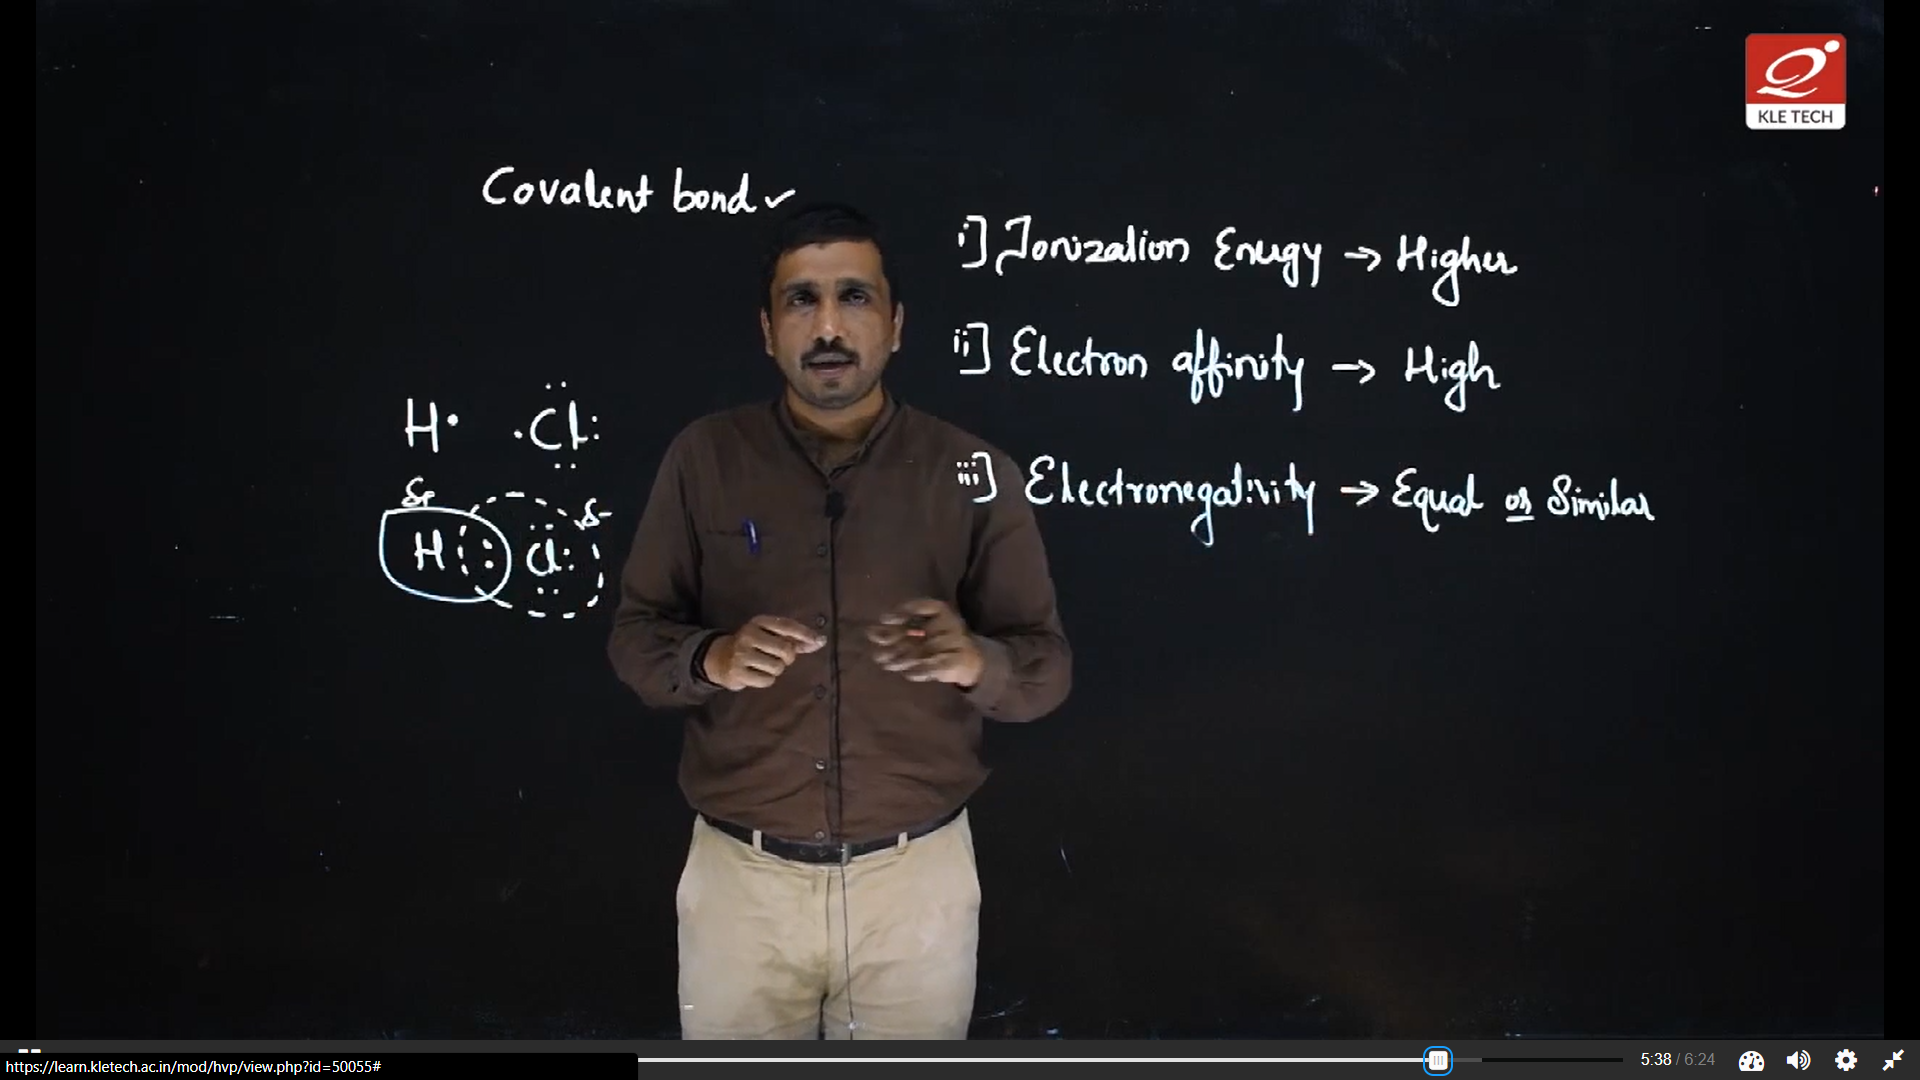 KLE TECH
Covalent bond ✓
i] Ionization Energy → Higher
ii] Electron affinity → High
iii] Electronegativity → Equal or Similar
H· ·Cl:
δ+ δ-
H : Cl:
https://learn.kletech.ac.in/mod/hvp/view.php?id=50055#
5:38 / 6:24